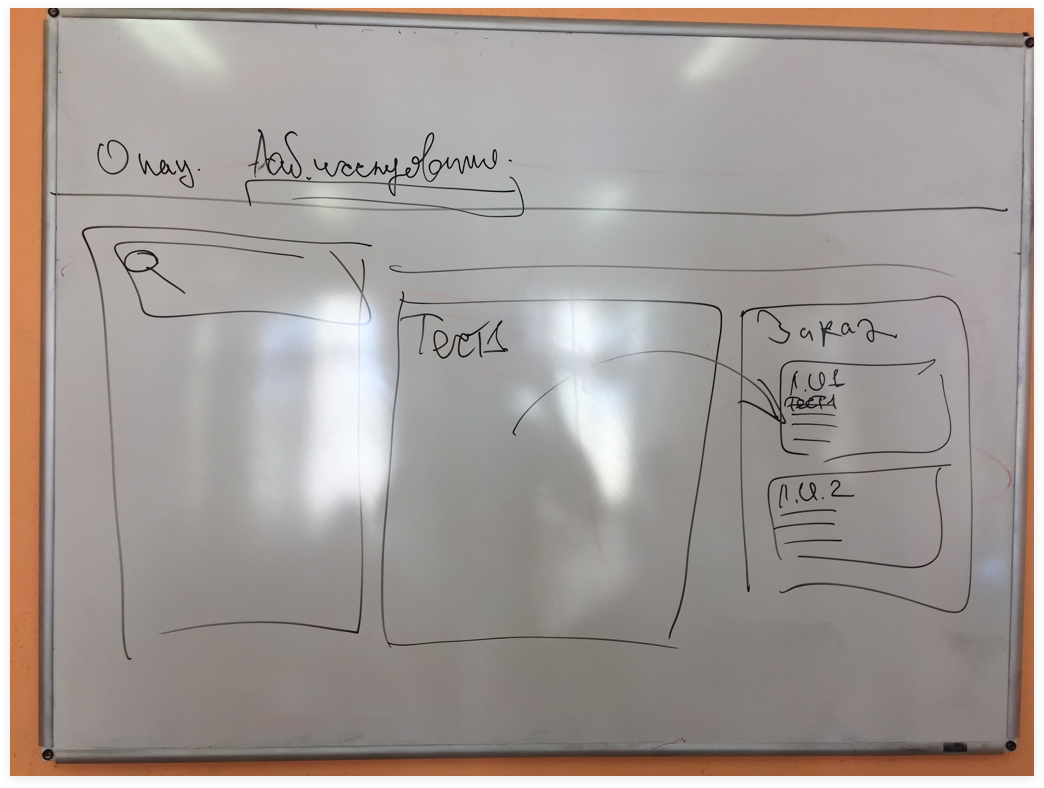 О пац. Лаб. исследование.
Тест1
Заказ
Л.И1
тест1
Л.И.2